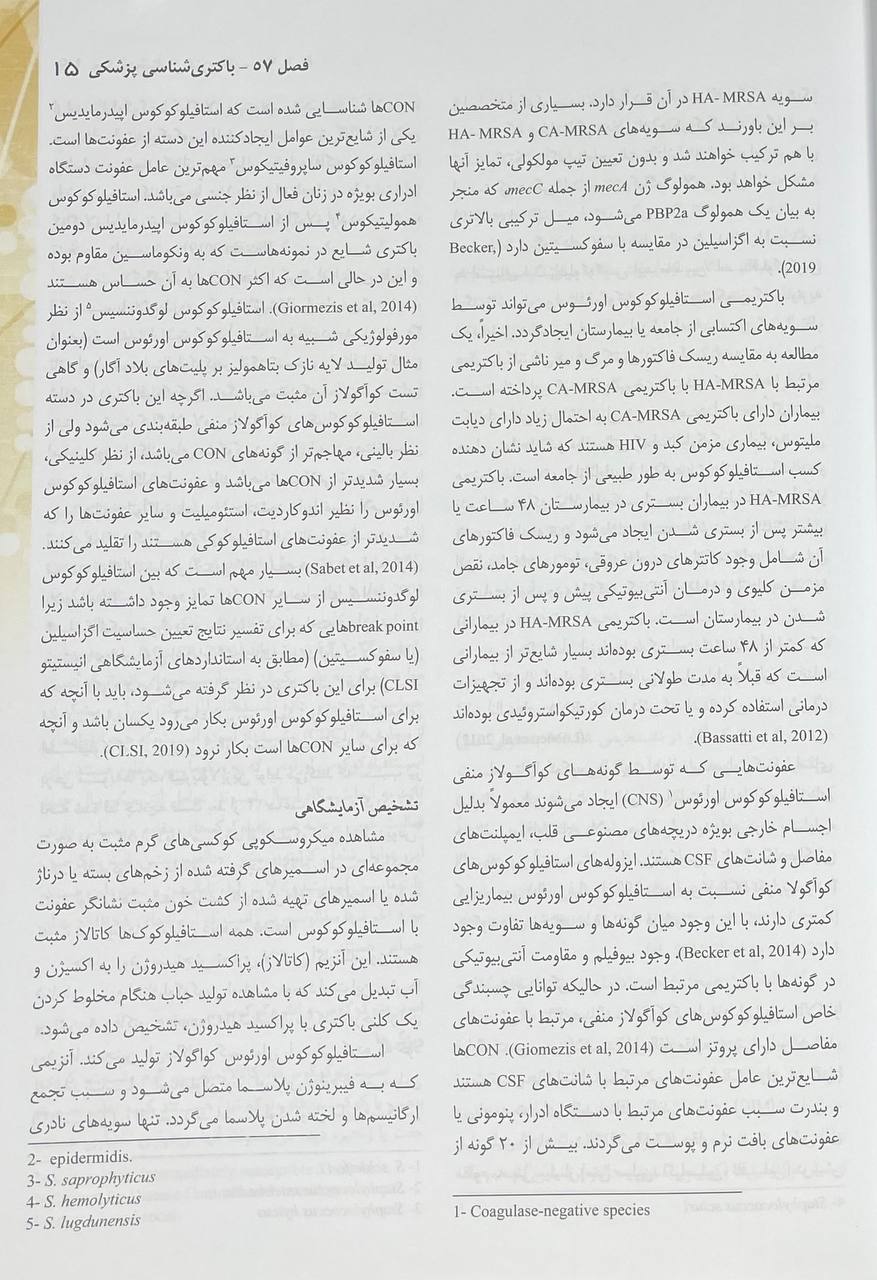 فصل ۵۷ - باکتری‌شناسی پزشکی ۱۵
سویه HA- MRSA در آن قرار دارد. بسیاری از متخصصین
بر این باورند که سویه‌های CA-MRSA و HA- MRSA
با هم ترکیب خواهند شد و بدون تعیین تیپ مولکولی، تمایز آنها
مشکل خواهد بود. همولوگ ژن mecA از جمله mecC، که منجر
به بیان یک همولوگ PBP2a می‌شود، میل ترکیبی بالاتری
نسبت به اگزاسیلین در مقایسه با سفوکسیتین دارد (Becker,
2019).
باکتریمی استافیلوکوکوس اورئوس می‌تواند توسط
سویه‌های اکتسابی از جامعه یا بیمارستان ایجادگردد. اخیراً، یک
مطالعه به مقایسه ریسک فاکتورها و مرگ و میر ناشی از باکتریمی
مرتبط با HA-MRSA با باکتریمی CA-MRSA پرداخته است.
بیماران دارای باکتریمی CA-MRSA به احتمال زیاد دارای دیابت
ملیتوس، بیماری مزمن کبد و HIV هستند که شاید نشان دهنده
کسب استافیلوکوکوس به طور طبیعی از جامعه است. باکتریمی
HA-MRSA در بیماران بستری در بیمارستان ۴۸ ساعت یا
بیشتر پس از بستری شدن ایجاد می‌شود و ریسک فاکتورهای
آن شامل وجود کاتترهای درون عروقی، تومورهای جامد، نقص
مزمن کلیوی و درمان آنتی‌بیوتیکی پیش و پس از بستری
شدن در بیمارستان است. باکتریمی HA-MRSA در بیمارانی
که کمتر از ۴۸ ساعت بستری بوده‌اند بسیار شایع‌تر از بیمارانی
است که قبلاً به مدت طولانی بستری بوده‌اند و از تجهیزات
درمانی استفاده کرده و یا تحت درمان کورتیکواستروئیدی بوده‌اند
(Bassatti et al, 2012).
عفونت‌هایی که توسط گونه‌های کوآگولاز منفی
استافیلوکوکوس اورئوس۱ (CNS) ایجاد می‌شوند معمولاً بدلیل
اجسام خارجی بویژه دریچه‌های مصنوعی قلب، ایمپلنت‌های
مفاصل و شانت‌های CSF هستند. ایزوله‌های استافیلوکوکوس‌های
کوآگولا منفی نسبت به استافیلوکوکوس اورئوس بیماریزایی
کمتری دارند، با این وجود میان گونه‌ها و سویه‌ها تفاوت وجود
دارد (Becker et al, 2014). وجود بیوفیلم و مقاومت آنتی‌بیوتیکی
در گونه‌ها با باکتریمی مرتبط است. در حالیکه توانایی چسبندگی
خاص استافیلوکوکوس‌های کوآگولاز منفی، مرتبط با عفونت‌های
مفاصل دارای پروتز است (Giomezis et al, 2014). CONها
شایع‌ترین عامل عفونت‌های مرتبط با شانت‌های CSF هستند
و بندرت سبب عفونت‌های مرتبط با دستگاه ادرار، پنومونی یا
عفونت‌های بافت نرم و پوست می‌گردند. بیش از ۲۰ گونه از
1- Coagulase-negative species
CONها شناسایی شده است که استافیلوکوکوس اپیدرمایدیس۲
یکی از شایع‌ترین عوامل ایجادکننده این دسته از عفونت‌ها است.
استافیلوکوکوس ساپروفیتیکوس۳ مهم‌ترین عامل عفونت دستگاه
ادراری بویژه در زنان فعال از نظر جنسی می‌باشد. استافیلوکوکوس
همولیتیکوس۴ پس از استافیلوکوکوس اپیدرمایدیس دومین
باکتری شایع در نمونه‌هاست که به ونکوماسین مقاوم بوده
و این در حالی است که اکثر CONها به آن حساس هستند
(Giormezis et al, 2014). استافیلوکوکوس لوگدوننسیس۵ از نظر
مورفولوژیکی شبیه به استافیلوکوکوس اورئوس است (بعنوان
مثال تولید لایه نازک بتاهمولیز بر پلیت‌های بلاد آگار) و گاهی
تست کوآگولاز آن مثبت می‌باشد. اگرچه این باکتری در دسته
استافیلوکوکوس‌های کوآگولاز منفی طبقه‌بندی می‌شود ولی از
نظر بالینی، مهاجم‌تر از گونه‌های CON می‌باشد، از نظر کلینیکی،
بسیار شدیدتر از CONها می‌باشد و عفونت‌های استافیلوکوکوس
اورئوس را نظیر اندوکاردیت، استئومیلیت و سایر عفونت‌ها را که
شدیدتر از عفونت‌های استافیلوکوکی هستند را تقلید می‌کنند.
(Sabet et al, 2014) بسیار مهم است که بین استافیلوکوکوس
لوگدوننسیس از سایر CONها تمایز وجود داشته باشد زیرا
break pointهایی که برای تفسیر نتایج تعیین حساسیت اگزاسیلین
(یا سفوکسیتین) (مطابق به استانداردهای آزمایشگاهی انیستیتو
CLSI) برای این باکتری در نظر گرفته می‌شود، باید با آنچه که
برای استافیلوکوکوس اورئوس بکار می‌رود یکسان باشد و آنچه
که برای سایر CONها است بکار نرود (CLSI, 2019).
تشخیص آزمایشگاهی
مشاهده میکروسکوپی کوکسی‌های گرم مثبت به صورت
مجموعه‌ای در اسمیرهای گرفته شده از زخم‌های بسته یا درناژ
شده یا اسمیرهای تهیه شده از کشت خون مثبت نشانگر عفونت
با استافیلوکوکوس است. همه استافیلوکوک‌ها کاتالاز مثبت
هستند. این آنزیم (کاتالاز)، پراکسید هیدروژن را به اکسیژن و
آب تبدیل می‌کند که با مشاهده تولید حباب هنگام مخلوط کردن
یک کلنی باکتری با پراکسید هیدروژن، تشخیص داده می‌شود.
استافیلوکوکوس اورئوس کواگولاز تولید می‌کند. آنزیمی
که به فیبرینوژن پلاسما متصل می‌شود و سبب تجمع
ارگانیسم‌ها و لخته شدن پلاسما می‌گردد. تنها سویه‌های نادری
2- epidermidis.
3- S. saprophyticus
4- S. hemolyticus
5- S. lugdunensis